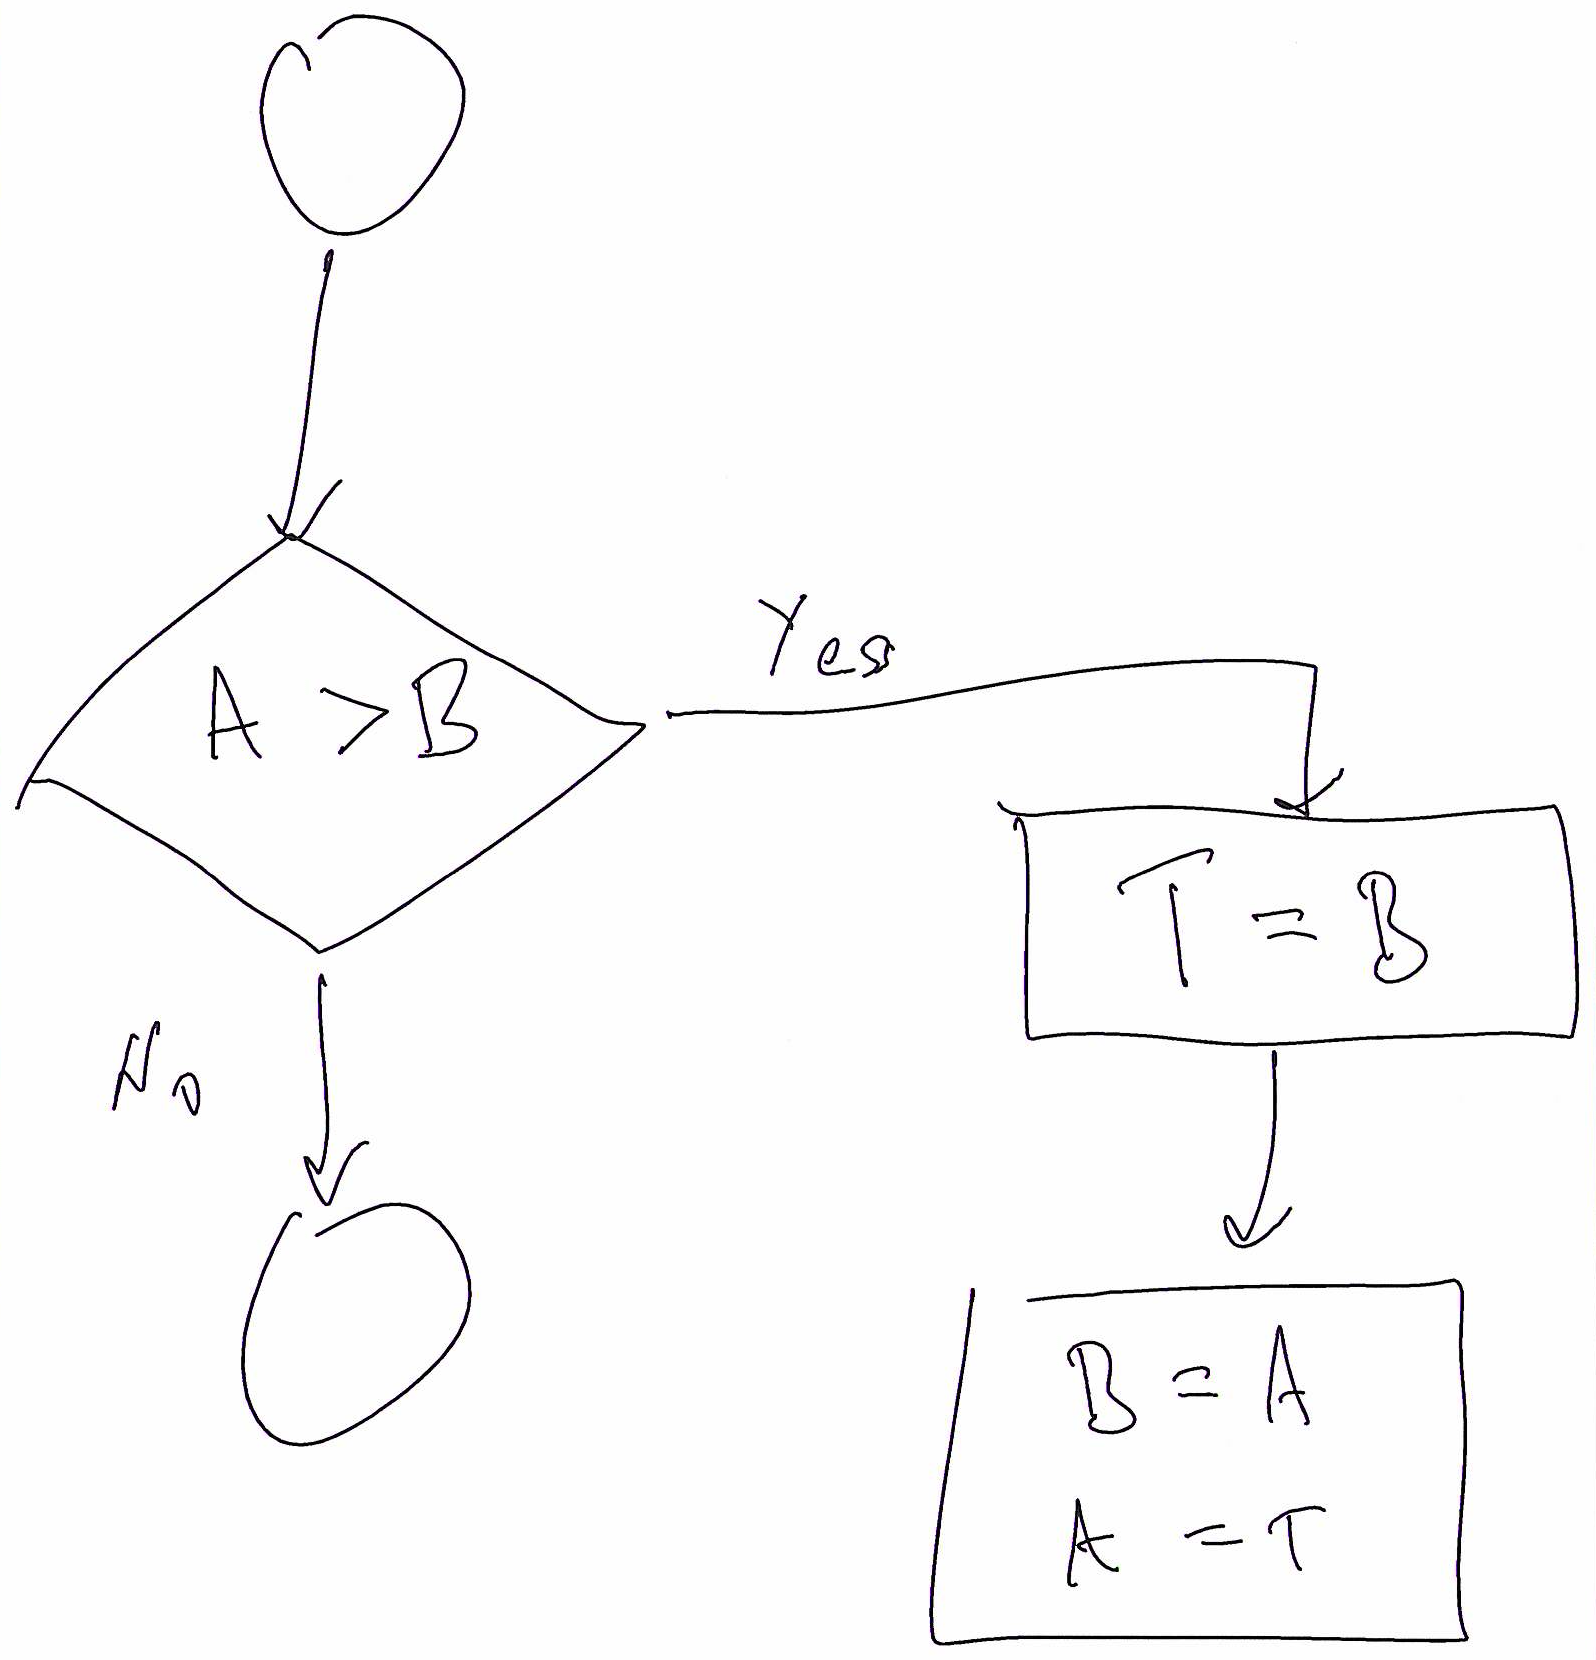 A > B
Yes
T = B
No
B = A
A = T